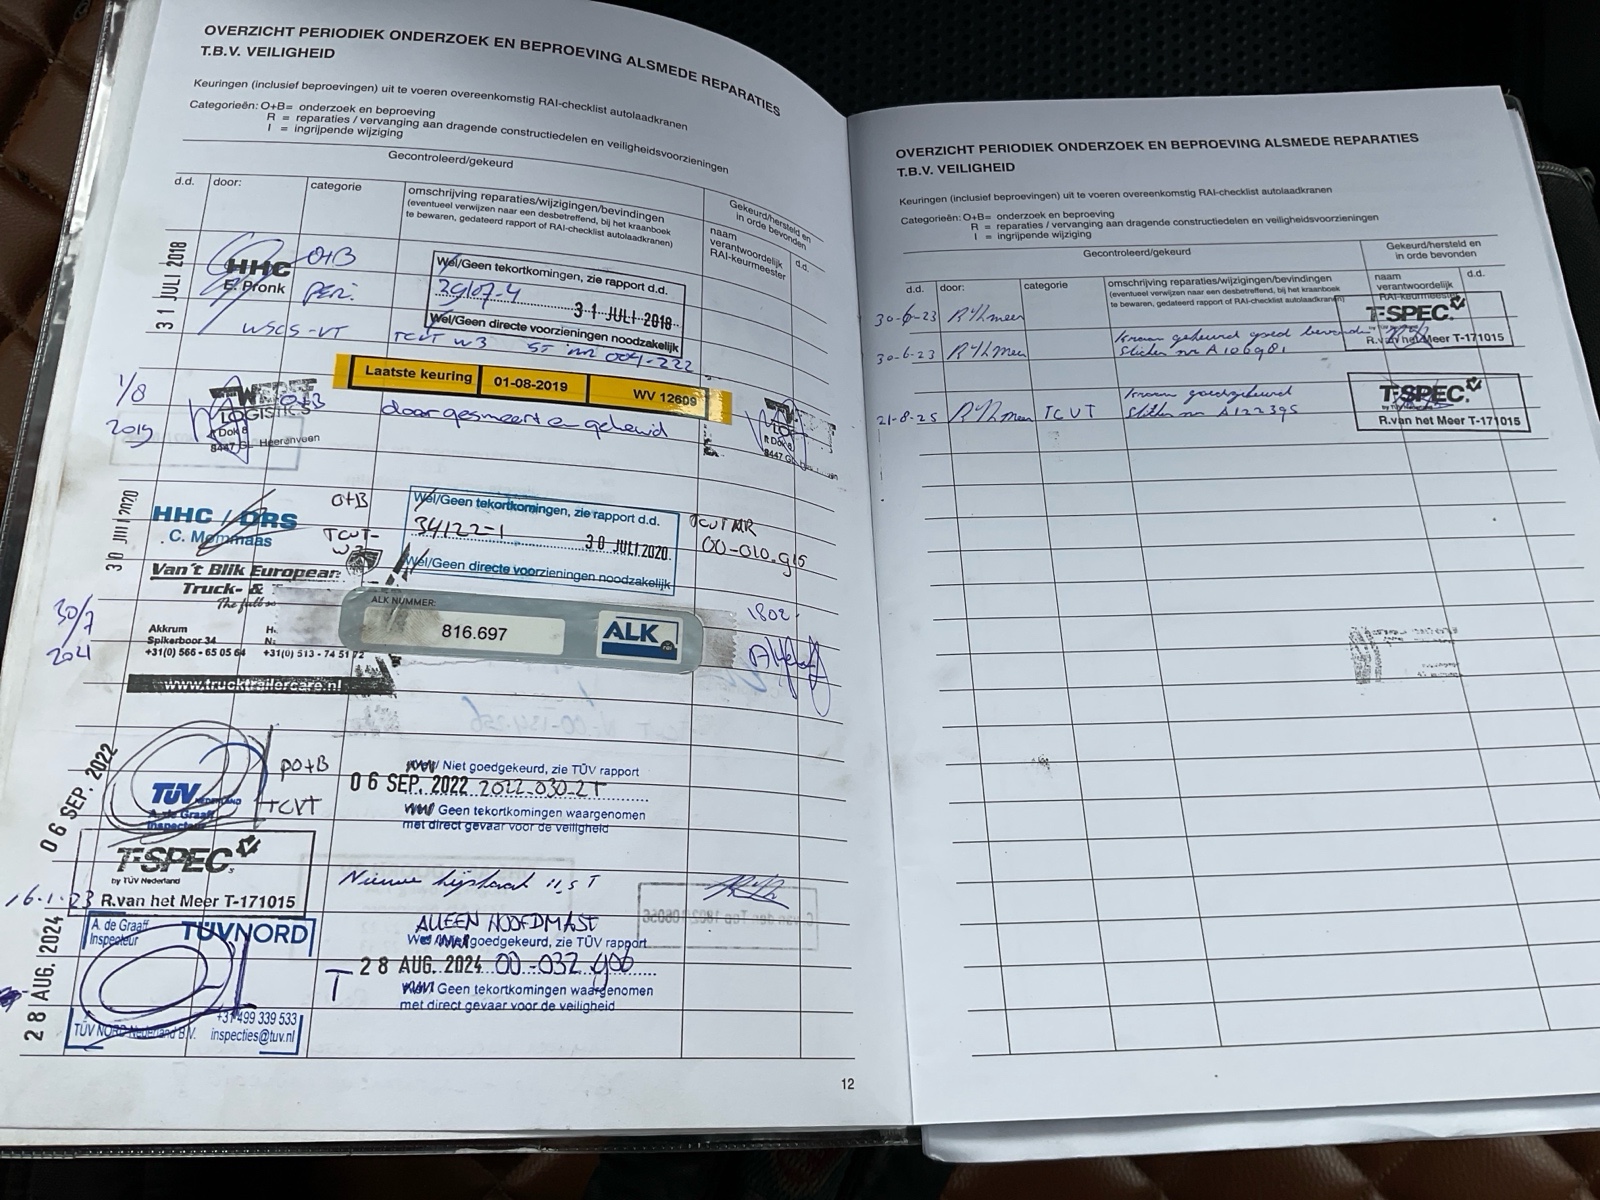 OVERZICHT PERIODIEK ONDERZOEK EN BEPROEVING ALSMEDE REPARATIES
T.B.V. VEILIGHEID
Keuringen (inclusief beproevingen) uit te voeren overeenkomstig RAI-checklist autolaadkranen
Categorieën: O+B = onderzoek en beproeving
R = reparaties / vervanging aan dragende constructiedelen en veiligheidsvoorzieningen
I = ingrijpende wijziging
Gecontroleerd/gekeurd
Gekeurd/hersteld en in orde bevonden
d.d.
door:
categorie
omschrijving reparaties/wijzigingen/bevindingen
(eventueel verwijzen naar een desbetreffend, bij het kraanboek
te bewaren, gedateerd rapport of RAI-checklist autolaadkranen)
naam
verantwoordelijk
RAI-keurmeester
d.d.
31 JULI 2018
HHC
E. Pronk
O+B
PERi.
Wel/Geen tekortkomingen, zie rapport d.d.
29107-4
31 JULI 2018
Wel/Geen directe voorzieningen noodzakelijk
WSCS-VT
TCVT W3
ST nr 004-222
Laatste keuring 01-08-2019 WV 12609
1/8
2019
LOGISTICS
O+B
Dok 8
8447 GL Heerenveen
doorgesmeert en gekeurd
30 JULI 2020
HHC / DRS
C. Mommaas
O+B
TCVT-
W3
Wel/Geen tekortkomingen, zie rapport d.d.
34122-1
30 JULI 2020
Wel/Geen directe voorzieningen noodzakelijk
TCVT NR
00-010.915
Van't Blik European
Truck- &
The full
30/7
2021
Akkrum
Spikerboor 34
+31(0) 566 - 65 05 64
+31(0) 513 - 74 51 72
www.trucktrailercare.nl
ALK NUMMER:
816.697
ALK
1802-
06 SEP. 2022
TÜV NEDERLAND
A. de Graaff
Inspecteur
PO+B
TCVT
Niet goedgekeurd, zie TÜV rapport
06 SEP. 2022 2022-030-2T
Geen tekortkomingen waargenomen
met direct gevaar voor de veiligheid
T-SPEC
by TÜV Nederland
16-1-23
R.van het Meer T-171015
Nieuwe
28 AUG. 2024
A. de Graaff
Inspecteur
TÜVNORD
+31 499 339 533
TÜV NORD Nederland B.V.
inspecties@tuv.nl
ALLEEN HOOFDMAST
goedgekeurd, zie TÜV rapport
T 28 AUG. 2024 00-032.906
Geen tekortkomingen waargenomen
met direct gevaar voor de veiligheid
12
OVERZICHT PERIODIEK ONDERZOEK EN BEPROEVING ALSMEDE REPARATIES
T.B.V. VEILIGHEID
Keuringen (inclusief beproevingen) uit te voeren overeenkomstig RAI-checklist autolaadkranen
Categorieën: O+B = onderzoek en beproeving
R = reparaties / vervanging aan dragende constructiedelen en veiligheidsvoorzieningen
I = ingrijpende wijziging
Gecontroleerd/gekeurd
Gekeurd/hersteld en
in orde bevonden
d.d.
door:
categorie
omschrijving reparaties/wijzigingen/bevindingen
(eventueel verwijzen naar een desbetreffend, bij het kraanboek
te bewaren, gedateerd rapport of RAI-checklist autolaadkranen)
naam
verantwoordelijk
RAI-keurmeester
d.d.
30-6-23
T-SPEC
30-6-23
Kraan gekeurd goed bevonden
Sticker nr A106981
R.van het Meer T-171015
21-8-25
TCVT
Kraan goedgekeurd
Sticker nr A122395
T-SPEC
by TÜV Nederland
R.van het Meer T-171015